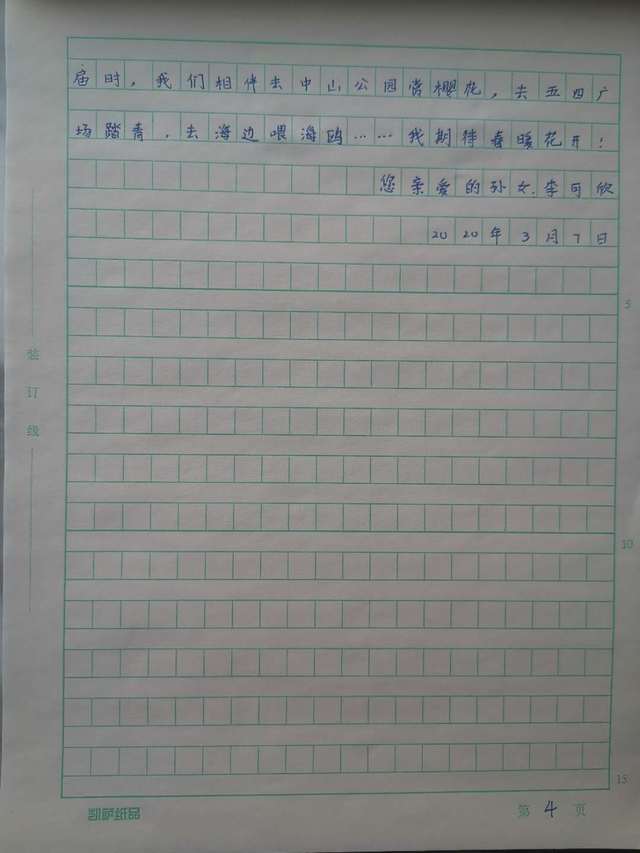 庙时，我们相伴去中山公园赏樱花，去五四广
场踏青，去海边喂海鸥……我期待春暖花开！
您亲爱的孙女：李可欣
2020年3月7日
5
装
订
线
10
15
凯萨纸品
第 4 页